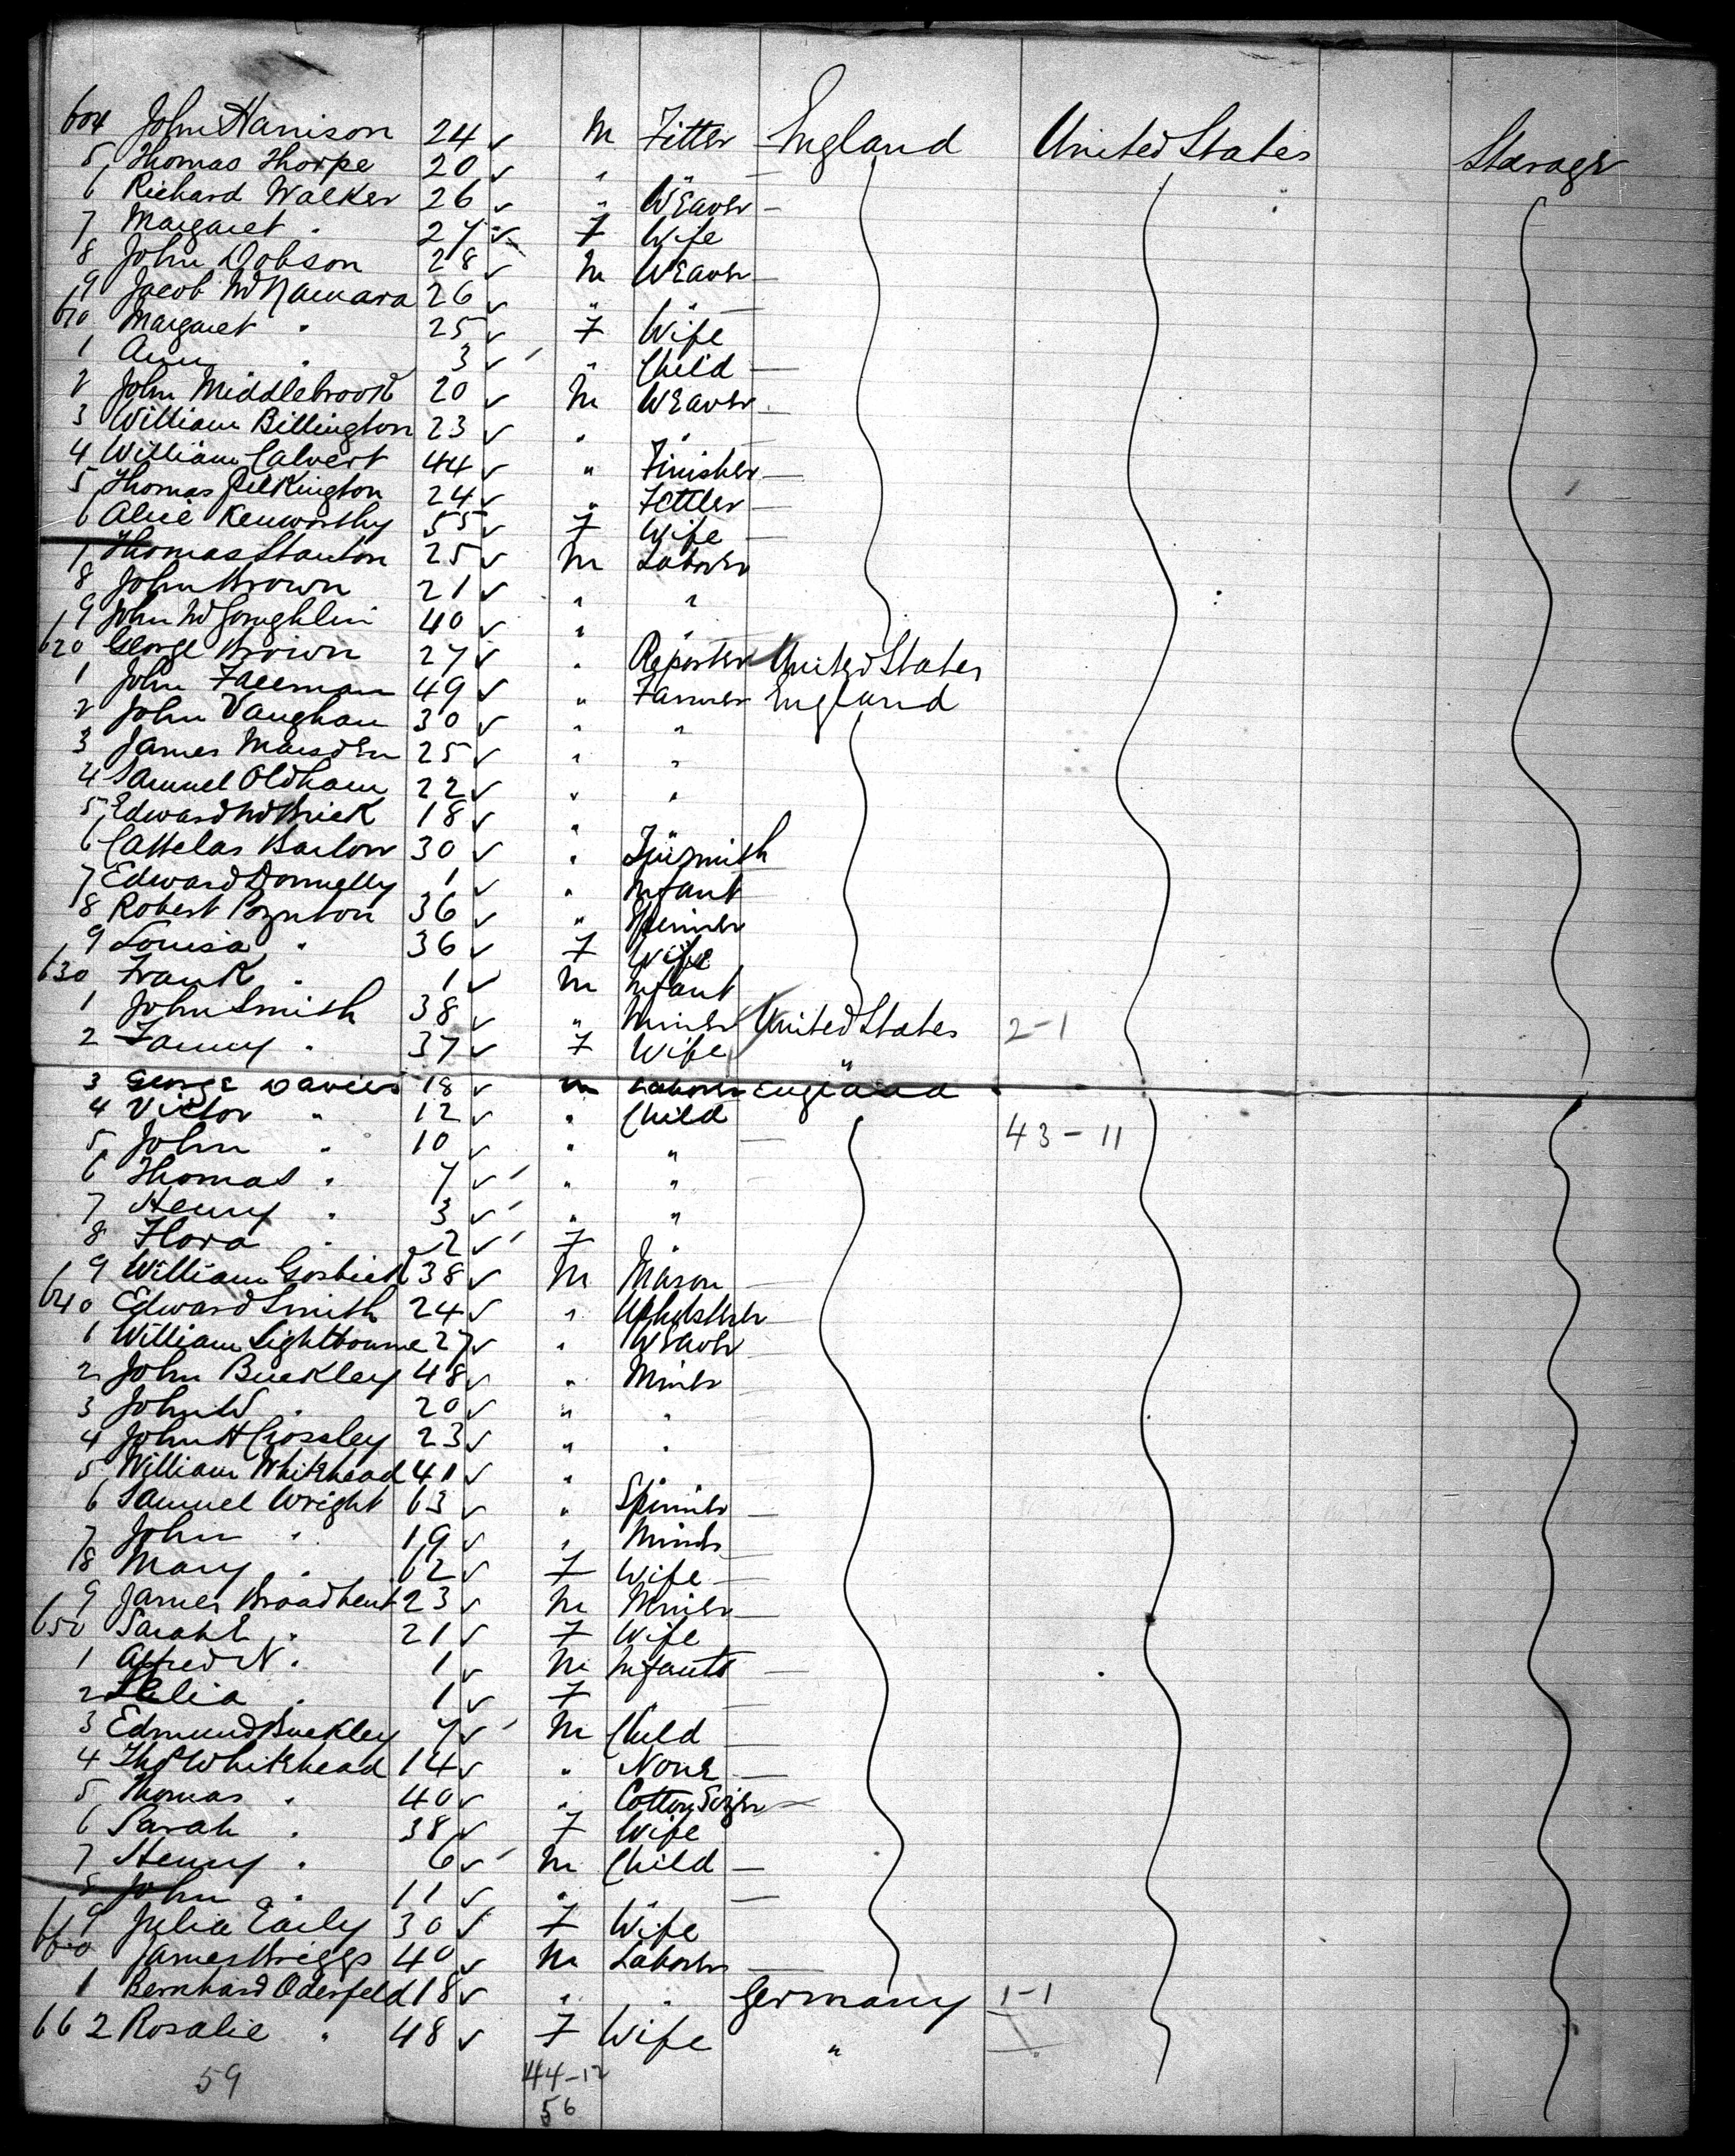 604 John Harrison 24 ✓ M Fitter England United States Steerage
5 Thomas Thorpe 20 ✓ " " —
6 Richard Walker 26 ✓ " Weaver —
7 Margaret " 27 ✓ F Wife
8 John Dobson 28 ✓ M Weaver —
9 Jacob McNamara 26 ✓ " " —
610 Margaret " 25 ✓ F Wife
1 Ann " 3 ✓ " Child —
2 John Middlebrook 20 ✓ M Weaver —
3 William Billington 23 ✓ " " —
4 William Calvert 44 ✓ " Finisher —
5 Thomas Pilkington 24 ✓ " Fettler —
6 Alice Kenworthy 55 ✓ F Wife —
7 Thomas Stanton 25 ✓ M Laborer
8 John Brown 21 ✓ " "
9 John McLoughlin 40 ✓ " "
620 George Brown 27 ✓ " Reporter United States
1 John Falleman 49 ✓ " Farmer England
2 John Vaughan 30 ✓ " "
3 James Marsden 25 ✓ " "
4 Samuel Oldham 22 ✓ " "
5 Edward McBrick 18 ✓ " "
6 Barlow 30 ✓ "
7 Edward Donnelly 1 ✓ " Infant
8 Robert Poynton 36 ✓ " Spinner
9 Louisa " 36 ✓ F Wife
630 Frank " 1 ✓ M Infant
1 John Smith 38 ✓ " Miner United States 2-1
2 Fanny " 37 ✓ F Wife "
3 George Davies 18 ✓ M Laborer England
4 Victor " 12 ✓ " Child
5 John " 10 ✓ " " — 43-11
6 Thomas " 7 ✓ " "
7 Henry " 3 ✓ " "
8 Flora " 2 ✓ F "
9 William 38 ✓ M Mason —
640 Edward Smith 24 ✓ " Upholsterer —
1 William Lightbourne 27 ✓ " Weaver —
2 John Buckley 48 ✓ " Miner —
3 John W " 20 ✓ " " —
4 John H Crossley 23 ✓ " " —
5 William Whitehead 41 ✓ " " —
6 Samuel Wright 63 ✓ " Spinner —
7 John " 19 ✓ " Miner —
8 Mary " 62 ✓ F Wife —
9 James Broadbent 23 ✓ M Miner —
650 Sarah E " 21 ✓ F Wife
1 Alfred N " 1 ✓ M Infants —
2 Lelia " 1 ✓ F —
3 Edmund Buckley 7 ✓ M Child —
4 Thos Whitehead 14 ✓ " None —
5 Thomas " 40 ✓ " Cotton Sizer —
6 Sarah " 38 ✓ F Wife
7 Henry " 6 ✓ M Child —
8 John " 11 ✓ " " —
9 Julia Early 30 ✓ F Wife
660 James Briggs 40 ✓ M Laborer —
1 Bernhard Odersfeld 18 ✓ " " Germany 1-1
662 Rosalie " 48 ✓ F Wife "
59 44-12
56